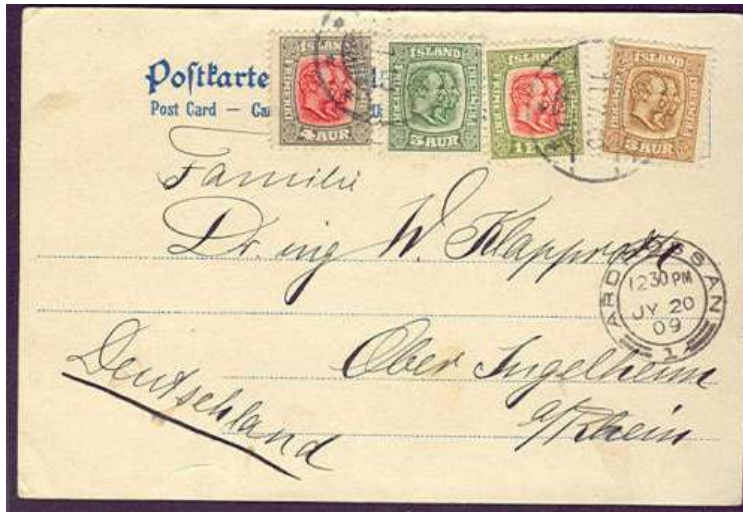 Postkarte
Post Card — Ca
ISLAND
4 AUR
ISLAND
5 AUR
ISLAND
1 E
ISLAND
3 AUR
Familie
Dr. ing W. Klapproth
ARDROSSAN
12 30 PM
JY 20
09
1
Ober Ingelheim
a/Rhein
Deutschland